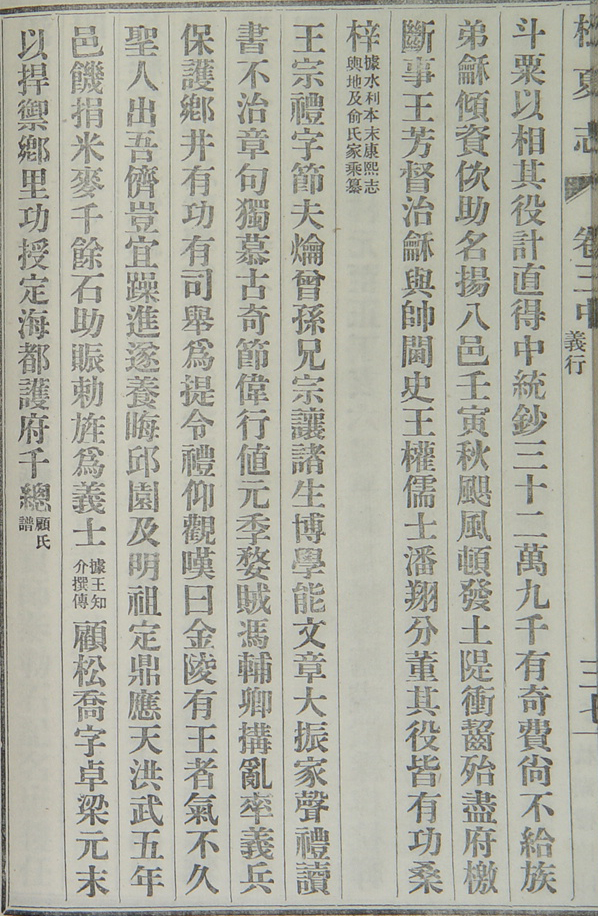 志 卷三中 義行
斗粟以相其役計直得中統鈔三十二萬九千有奇費尙不給族
弟龢傾資佽助名揚八邑壬寅秋颶風頓發土隄衝齧殆盡府檄
斷事王芳督治龢與帥閫史王權儒士潘翔分董其役皆有功桑
梓據水利本末康熙志
輿地及俞氏家乘纂
王宗禮字節夫爚曾孫兄宗讓諸生博學能文章大振家聲禮讀
書不治章句獨慕古奇節偉行値元季婺賊馮輔卿搆亂率義兵
保護鄕井有功有司舉爲提令禮仰觀嘆曰金陵有王者氣不久
聖人出吾儕豈宜躁進遂養晦邱園及明祖定鼎應天洪武五年
邑饑捐米麥千餘石助賑勅旌爲義士據王知
介撰傳顧松喬字卓梁元末
以捍禦鄕里功授定海都護府千總顧氏
譜